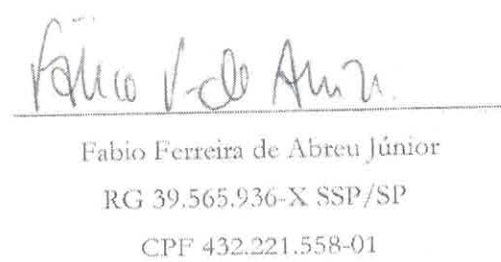 Fabio Ferreira de Abreu Júnior
RG 39.565.936-X SSP/SP
CPF 432.221.558-01